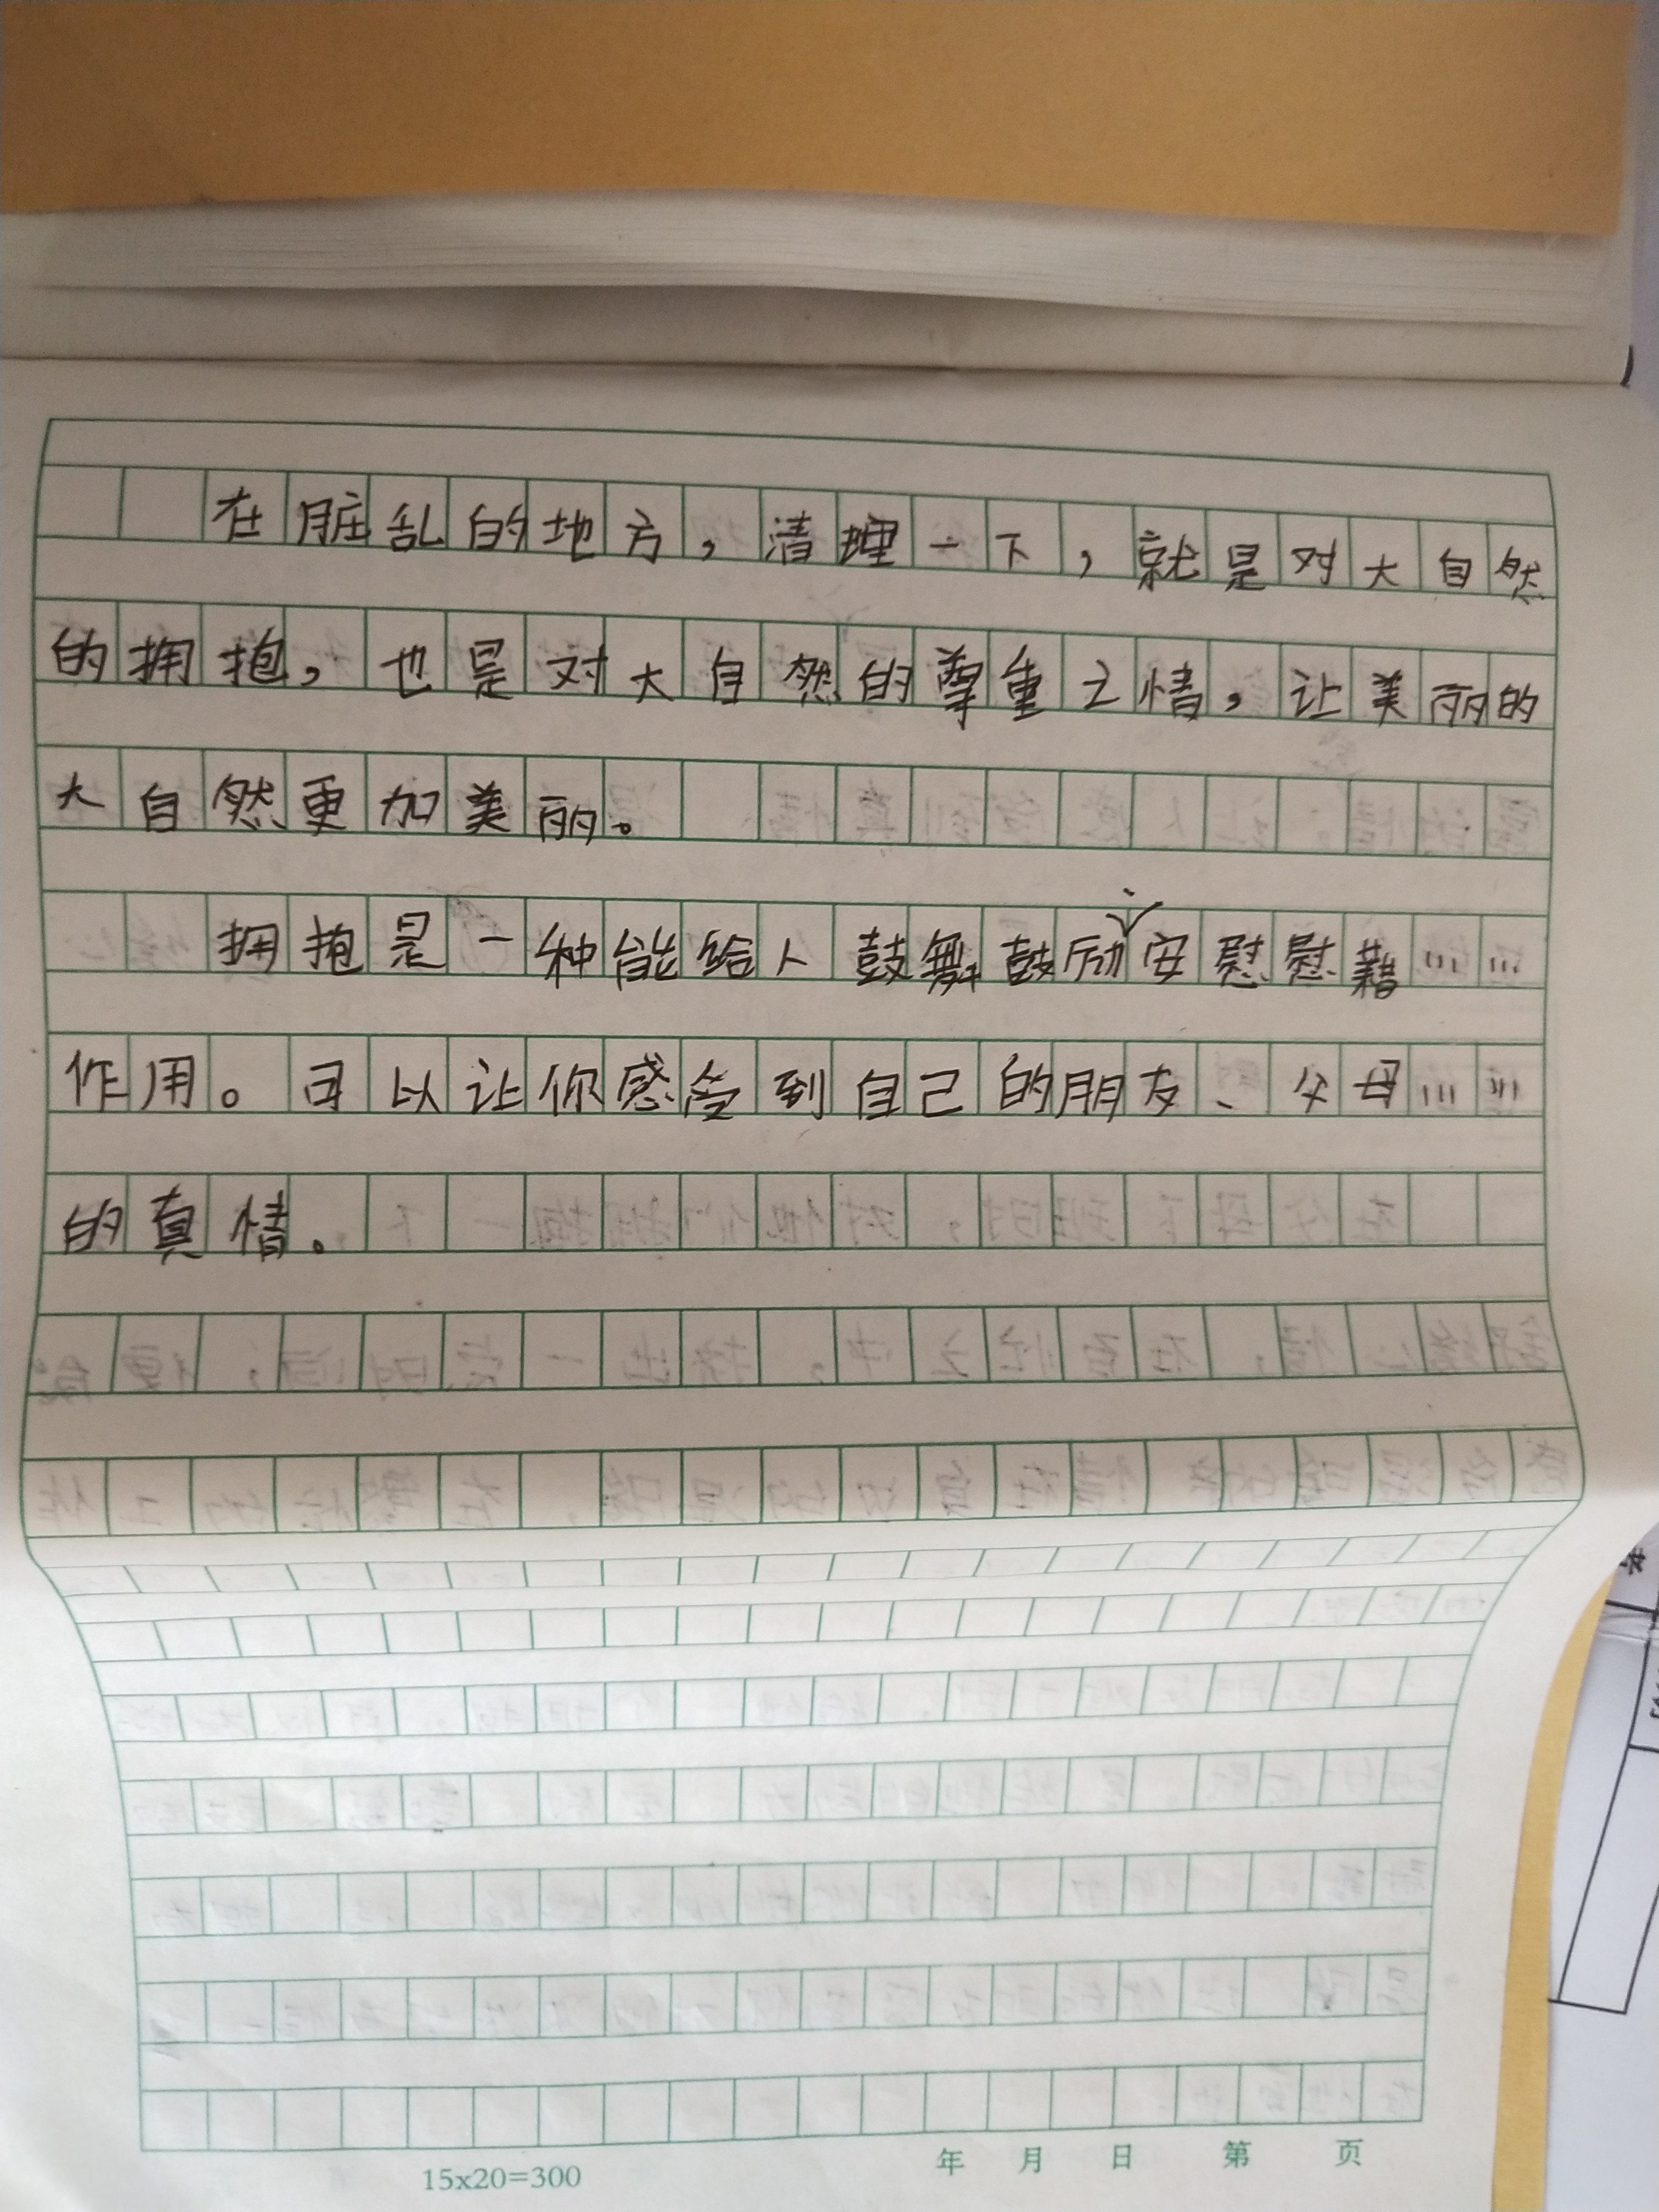 在脏乱的地方，清理一下，就是对大自然
的拥抱，也是对大自然的尊重之情，让美丽的
大自然更加美丽。
拥抱是一种能给人鼓舞鼓励、安慰慰藉……
作用。可以让你感受到自己的朋友、父母……
的真情。
15x20=300 年 月 日 第 页